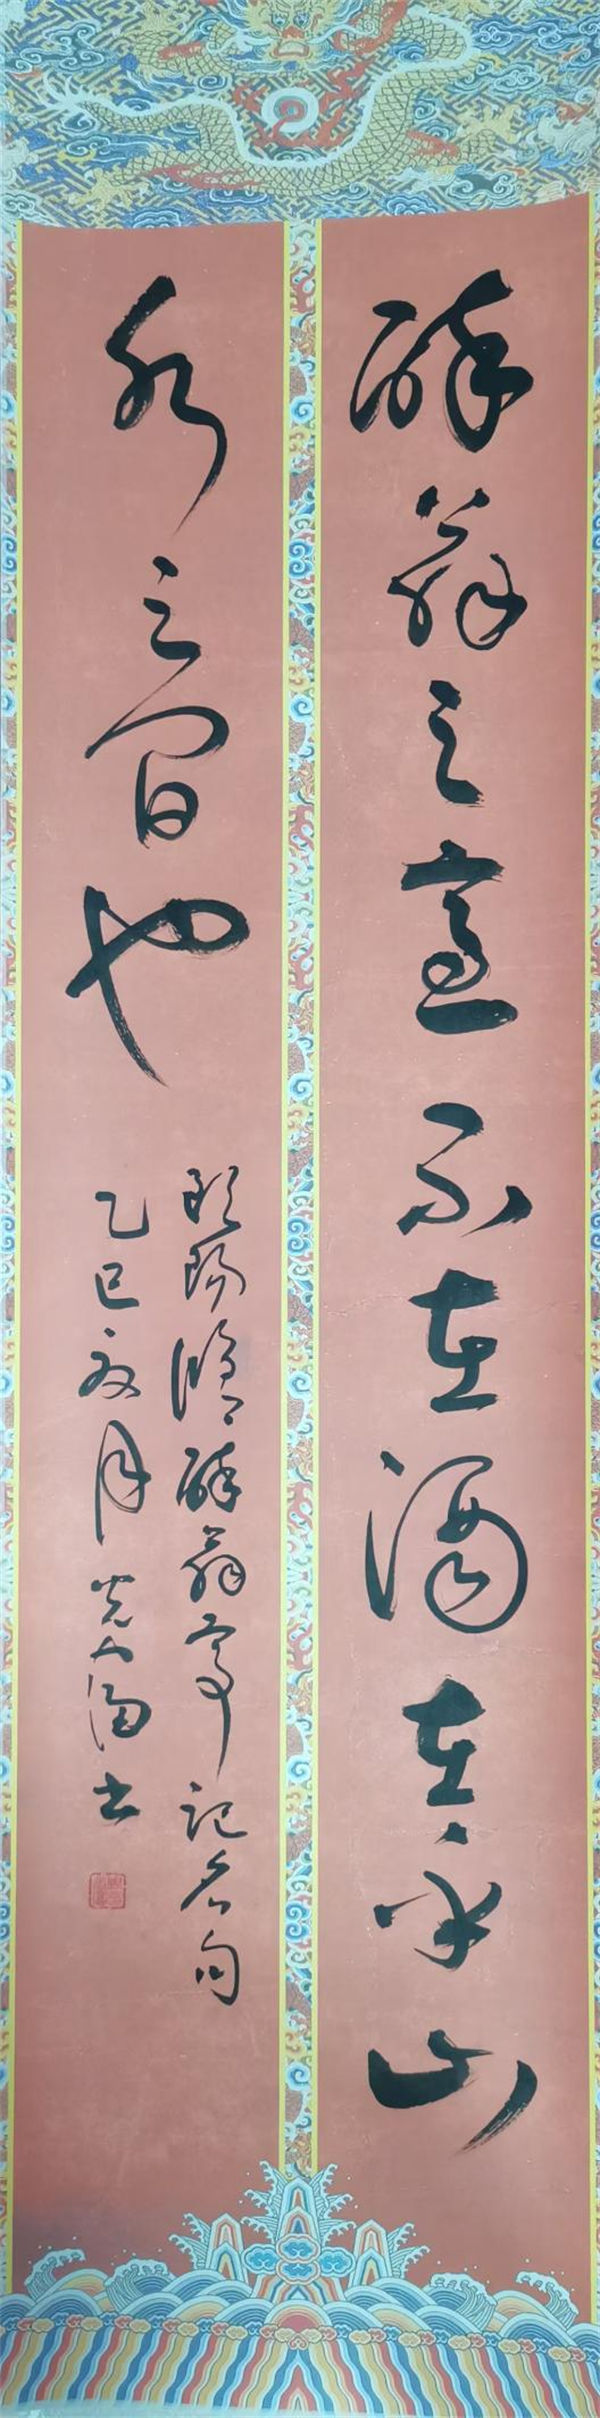 醉翁之意不在酒在乎山
水之間也
歐陽修醉翁亭記名句
乙巳夏月書